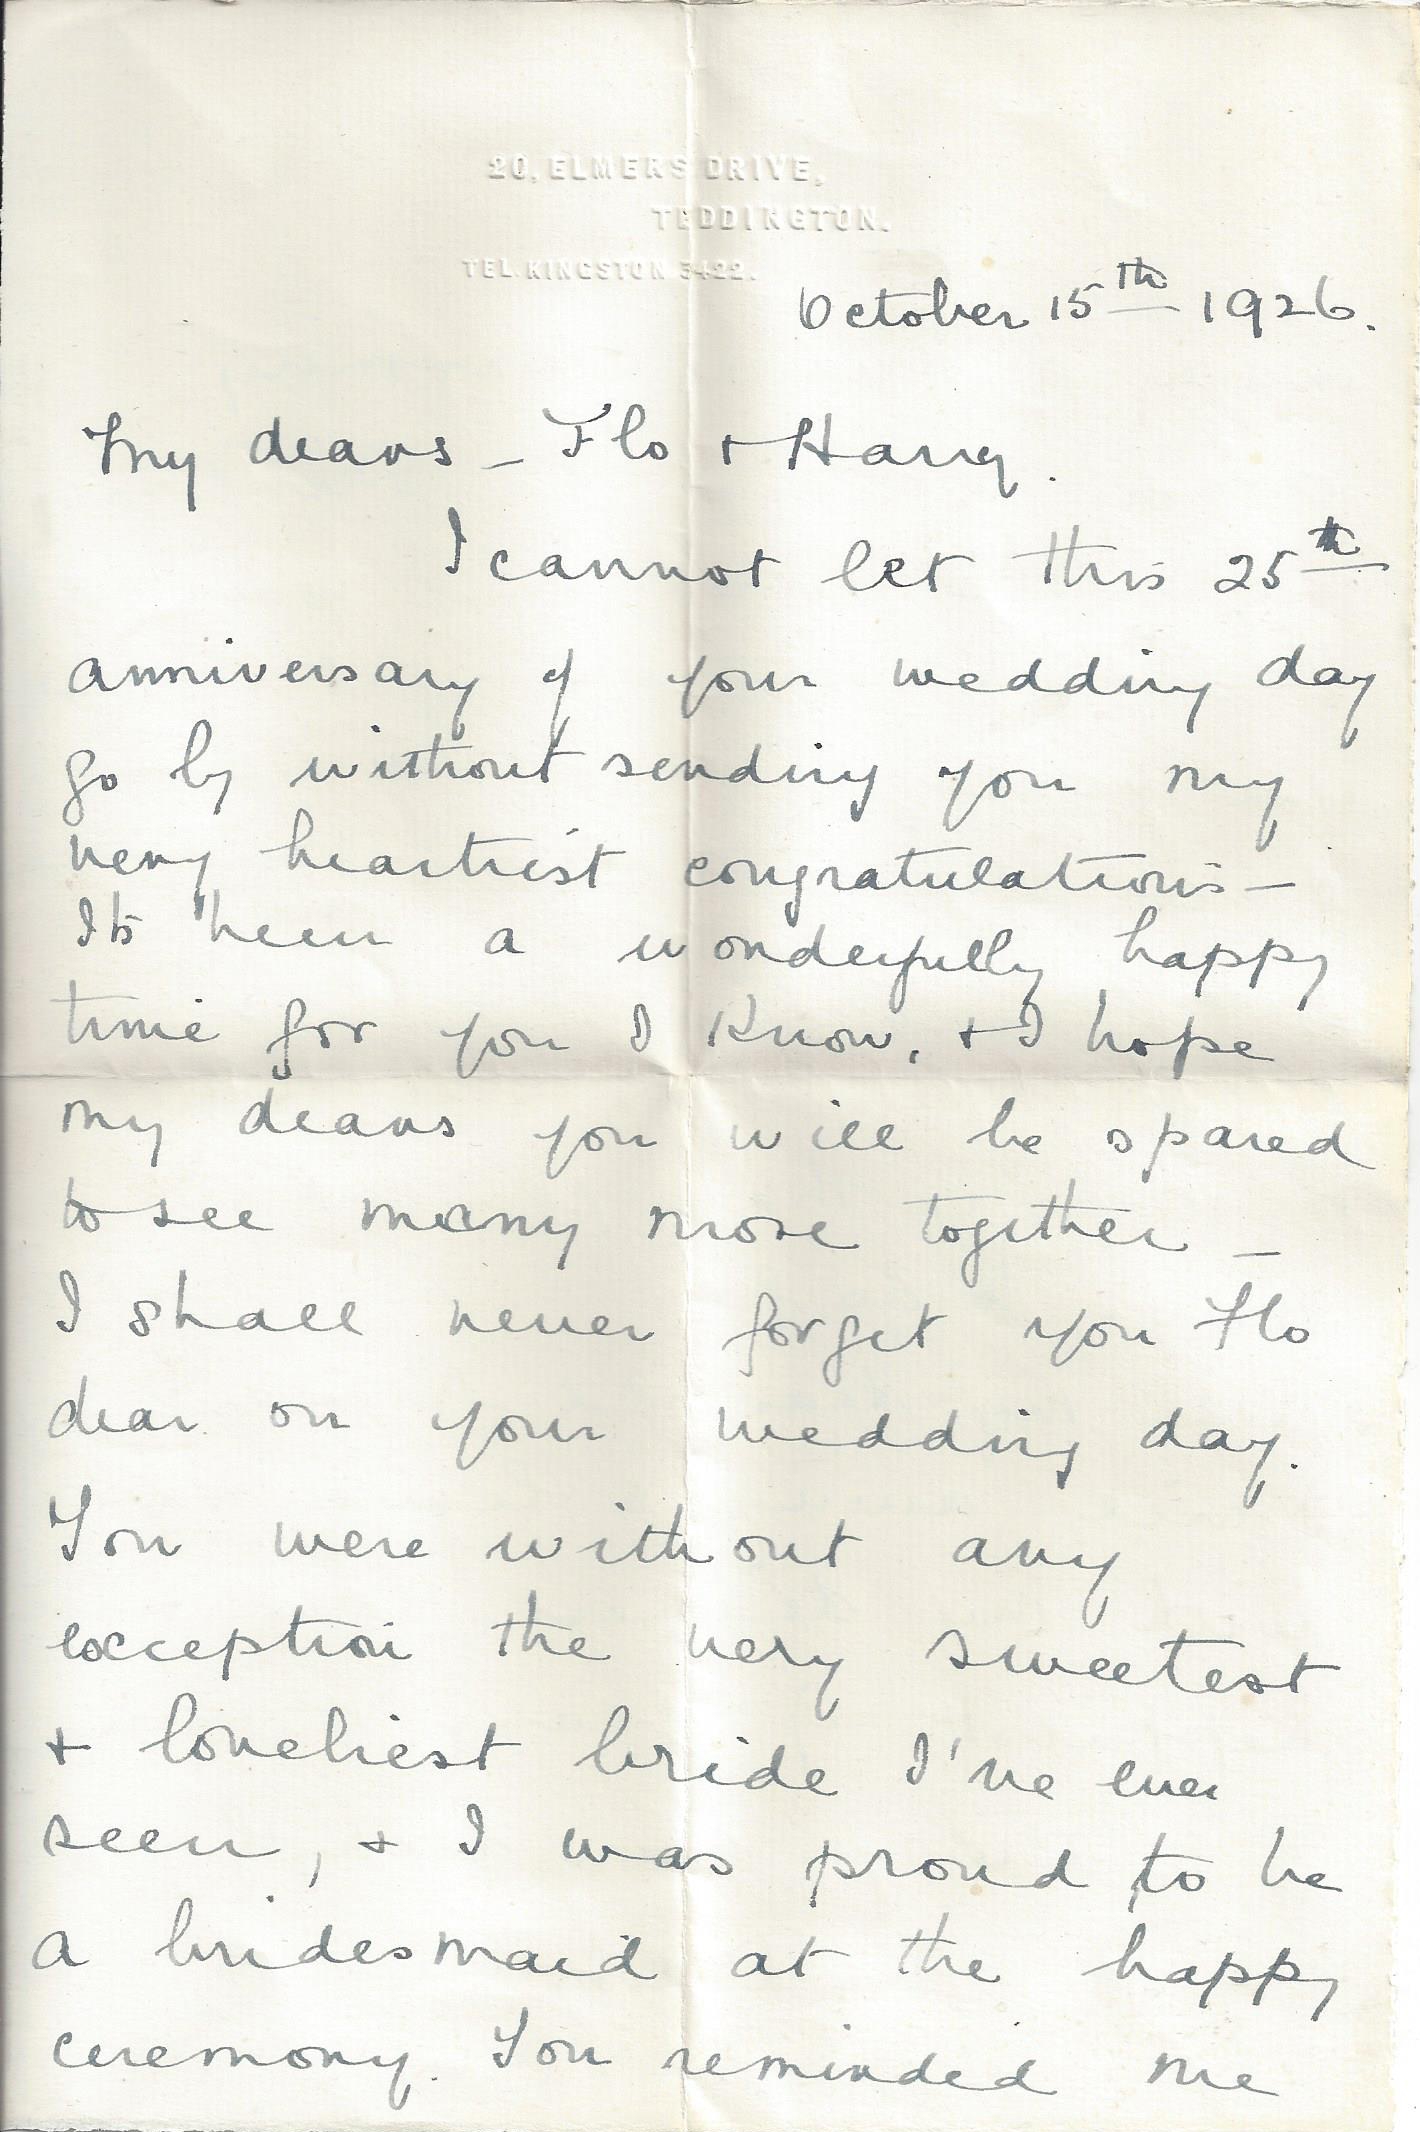 20, ELMERS DRIVE,
TEDDINGTON.
TEL. KINGSTON 3422.
October 15th 1926.
My dears - Flo + Harry.
I cannot let this 25th
anniversary of your wedding day
go by without sending you my
very heartiest congratulations -
Its been a wonderfully happy
time for you I know, + I hope
my dears you will be spared
to see many more together -
I shall never forget you Flo
dear on your wedding day.
You were without any
exception the very sweetest
+ loveliest bride I've ever
seen, + I was proud to be
a bridesmaid at the happy
ceremony. You reminded me